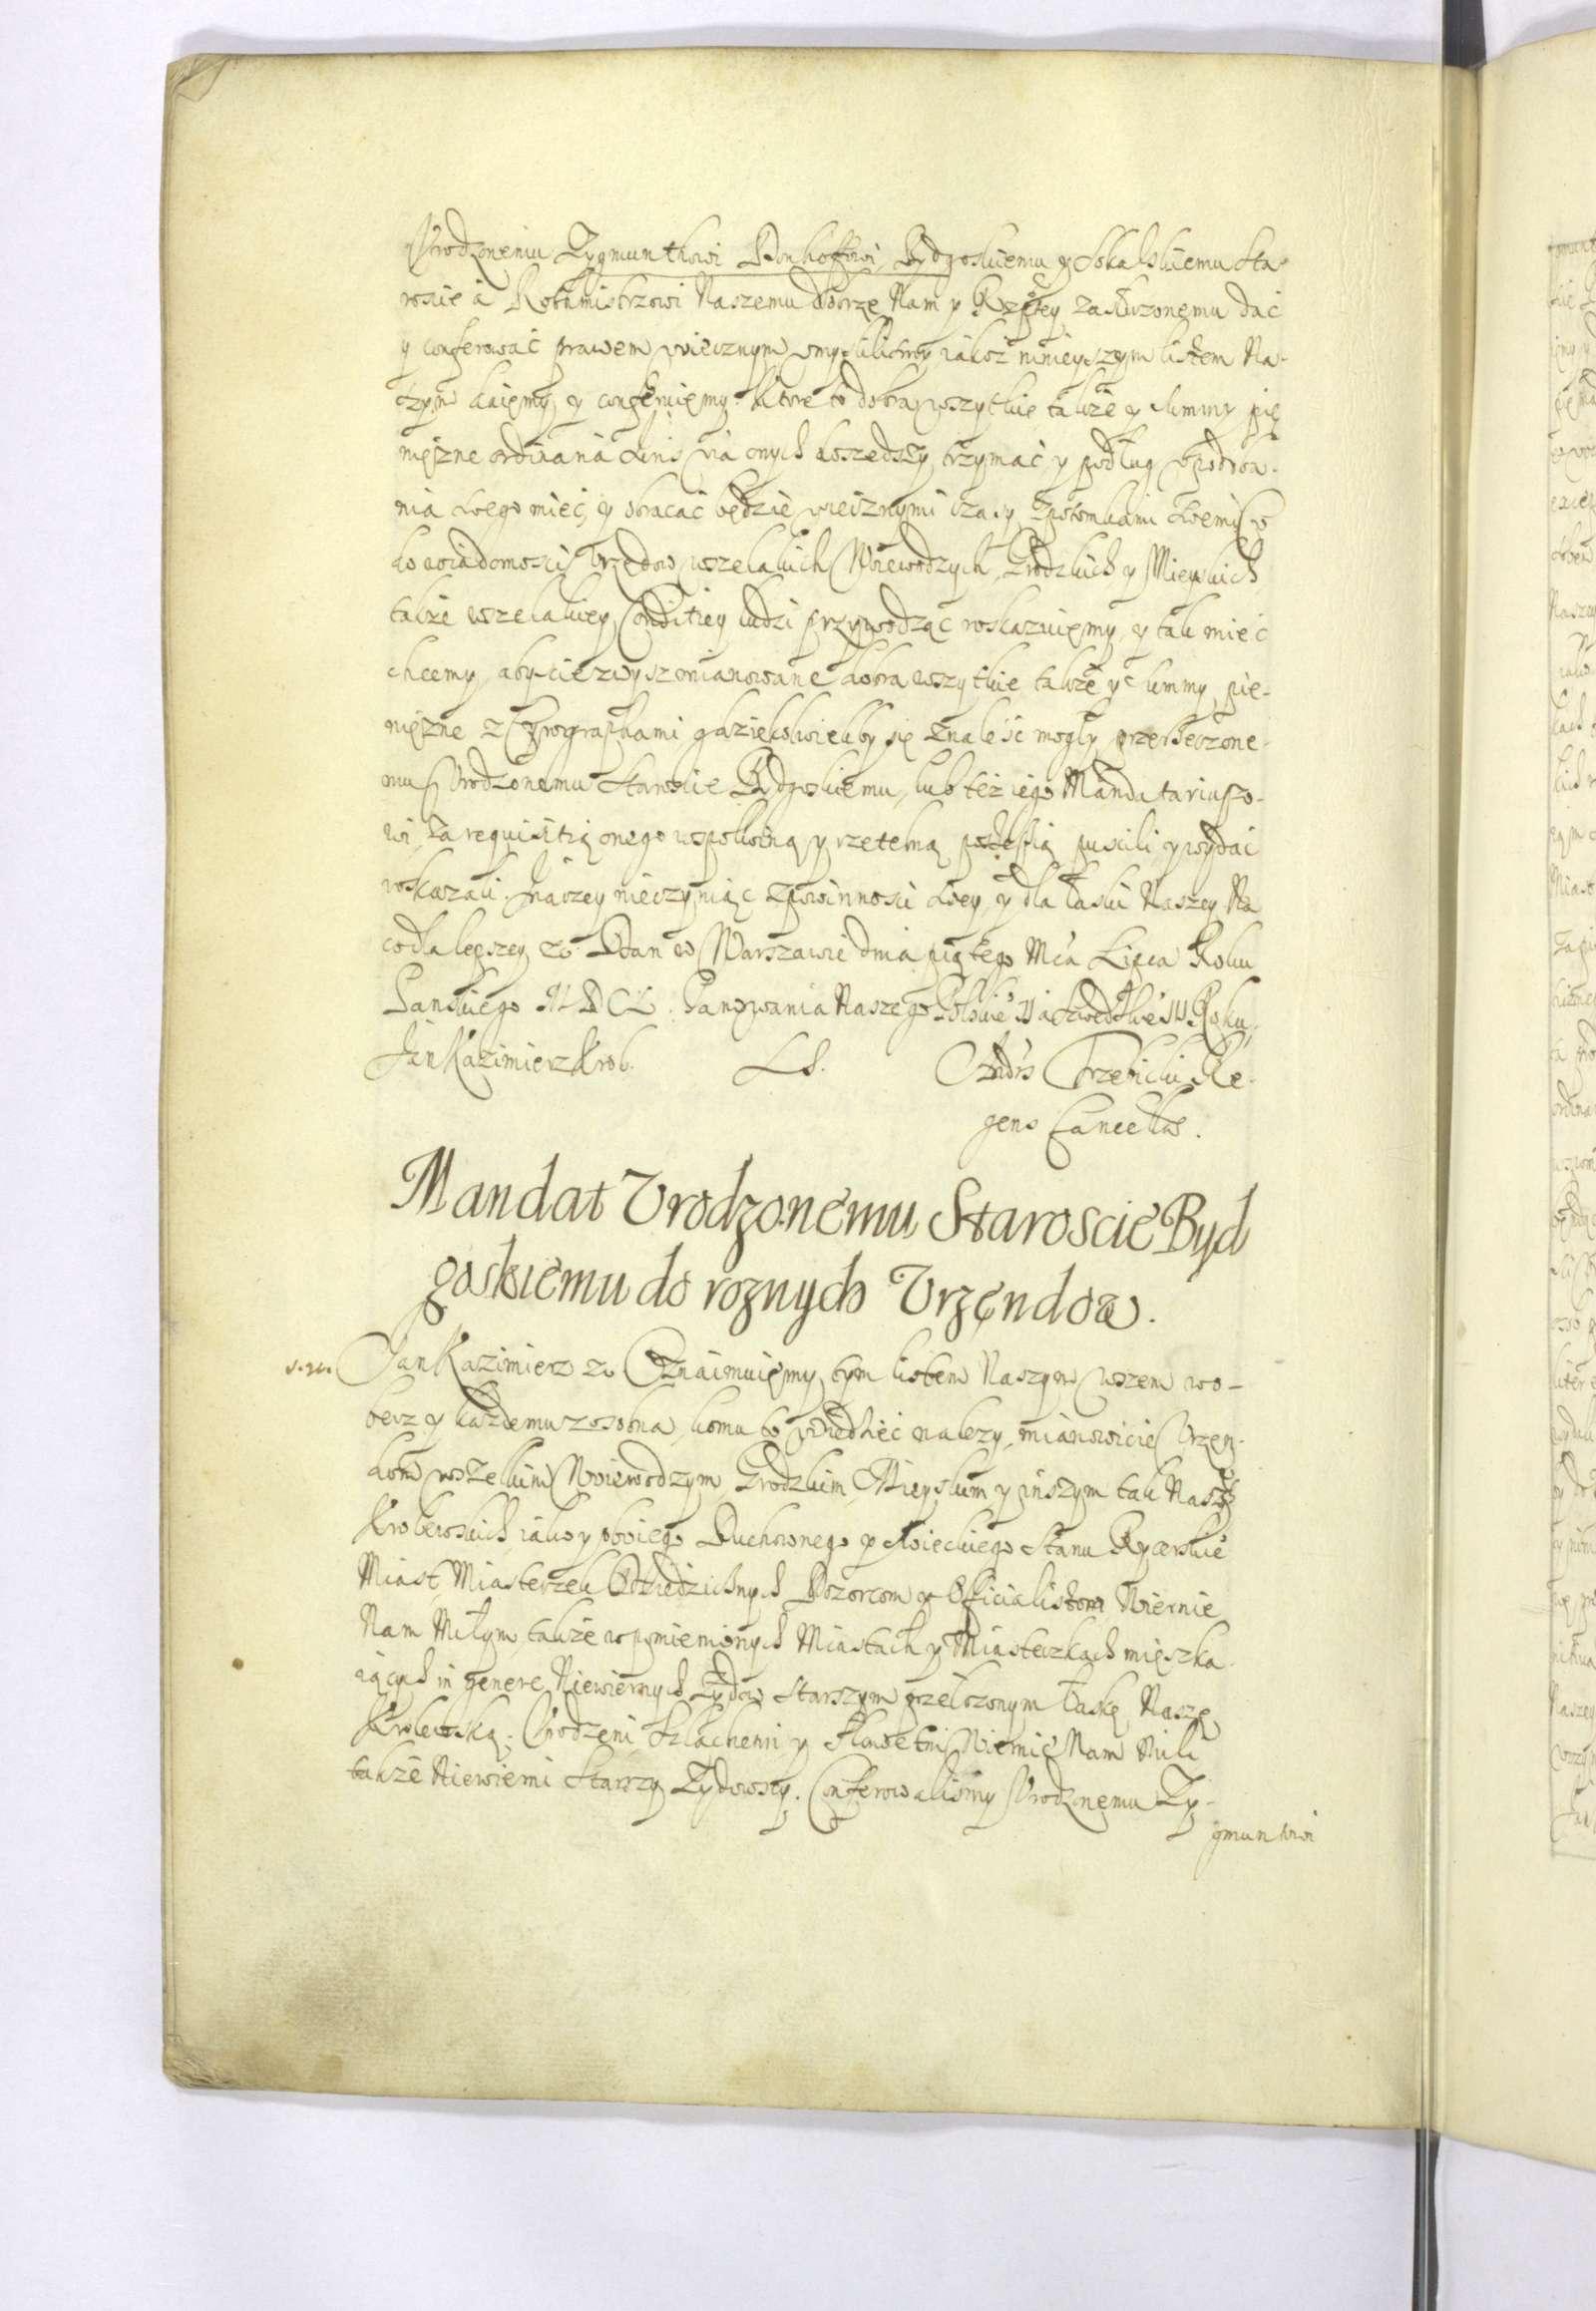 Vrodzonemu Zygmunthowi Denhoffowi, Bydgoskiemu y Sokalskiemu Sta-
roscie á Rothmistrzowi Naszemu dobrze Nam y Rzptey zasłuzonemu dać
y conferować prawem wiecznym umyslilismy, iakoż ninieyszym listem Na-
szym daiemy y conferuiemy. Ktore to dobra wszytkie także y summy pie
niężne ordinaria iuris via onych doszedszy trzymać y podług upodoba-
nia swego mieć y obracać będzie wiecznymi czasy z potomkami swemi. Co
do wiadomosci Vrzędow wszelakich Woiewodzych, Grodzkich y Mieyskich
także wszelakiey Conditiey ludzi przywodząc roskazuiemy, y tak mieć
chcemy, abyscie zwysz mianowane dobra wszytkie także y summy pie-
niężne z Chyrographami gdziekolwiekby się znaleść mogły przerzeczone-
mu Vrodzonemu Staroscie Bydgoskiemu, lub też iego Mandatariuszo-
wi, za requisitią onego wspokoiną y rzetelną possessią puscili y wydać
roskazali. Inaczey nieczyniąc z powinnosci swey y dla łaski Naszey. Na
co dla lepszey etc. Dan w Warszawie dnia piątego Mca Lipca Roku
Panskiego MDCL. Panowania Naszego Polskie° II á Szwedzkie° III Roku,
Jan Kazimierz Krol. LS. Andrs Trzebicki Re-
gens Cancellae.
Mandat Vrodzonemu Staroscie Byd
goskiemu do roznych Vrzendow.
Jan Kazimierz etc. Oznaimuiemy tym listem Naszym wszem wo-
becz y każdemu zosobna, komu to wiedzieć nalezy, mianowicie Vrzen-
dom wszelkim Woiewodzym Grodzkim, Mieyskim y inszym tak Naszych
Krolewskich iako y oboiego Duchownego y Swieckiego Stanu Rycerskie°
Miast, Miasteczek Dziedzicznych Dozorcom y Officialistom Wiernie
Nam Miłym, także w pomienionych Miastach y Miasteczkach mieszka-
iących in genere Niewiernych Żydow Starszym przełozonym łaskę Naszę
Krolewską. Vrodzeni Szlachetni y Sławetni Wiernie Nam Mili
także Niewierni Starszy Zydowscy. Conferowalismy Vrodzonemu Zy-
gmuntowi